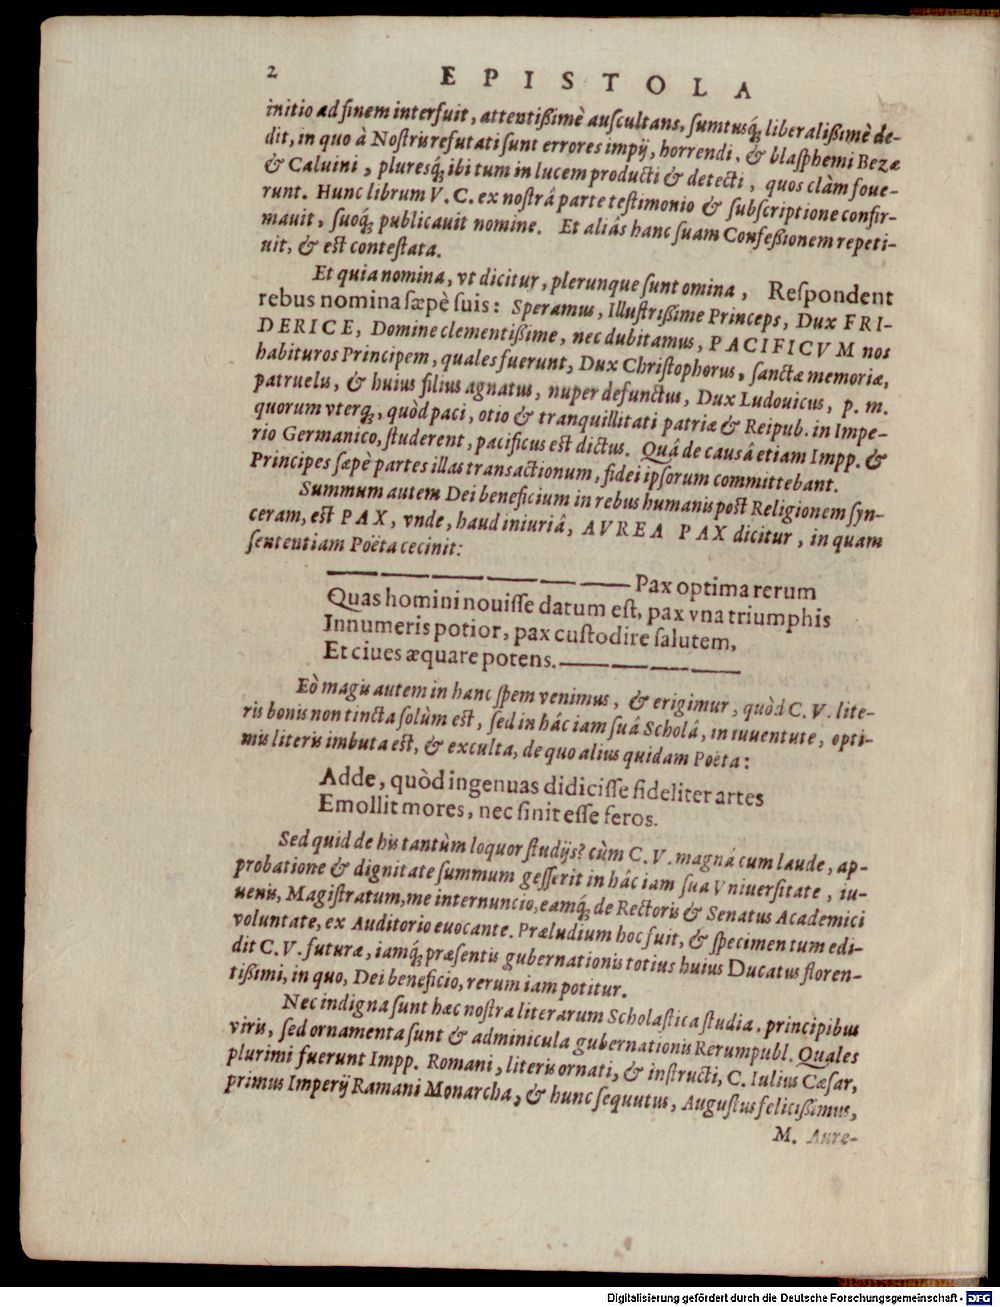 2
EPISTOLA
initio ad finem interfuit, attentißimè auſcultans, ſumtusq́ꝫ liberalißimè de-
dit, in quo à Noſtris refutati ſunt errores impij, horrendi, & blaſphemi Bezæ
& Caluini, pluresq́ꝫ ibi tum in lucem producti & detecti, quos clàm foue-
runt. Hunc librum V. C. ex noſtrâ parte teſtimonio & ſubſcriptione confir-
mauit, ſuoq́ꝫ publicauit nomine. Et aliás hanc ſuam Confeßionem repeti-
uit, & est conteſtata.
Et quia nomina, vt dicitur, plerunque ſunt omina, Reſpondent
rebus nomina ſæpè ſuis: Speramus, Illuſtrißime Princeps, Dux FRI-
DERICE, Domine clementißime, nec dubitamus, PACIFICVM nos
habituros Principem, quales fuerunt, Dux Chriſtophorus, ſanctæ memoriæ,
patruelis, & huius filius agnatus, nuper defunctus, Dux Ludouicus, p. m.
quorum vterq́ꝫ, quòd paci, otio & tranquillitati patriæ & Reipub. in Impe-
rio Germanico, ſtuderent, pacificus est dictus. Quâ de causâ etiam Impp. &
Principes ſæpè partes illas transactionum, fidei ipſorum committebant.
Summum autem Dei beneficium in rebus humanis post Religionem ſyn-
ceram, est PAX, vnde, haud iniuriâ, AVREA PAX dicitur, in quam
ſententiam Poëta cecinit:
— — — — — — Pax optima rerum
Quas homini nouiſſe datum eſt, pax vna triumphis
Innumeris potior, pax cuſtodire ſalutem,
Et ciues æquare potens. — — — —
Eò magis autem in hanc ſpem venimus, & erigimur, quòd C. V. lite-
ris bonis non tincta ſolùm est, ſed in hác iam ſuâ Scholâ, in iuuentute, opti-
mis literis imbuta est, & exculta, de quo alius quidam Poëta:
Adde, quòd ingenuas didiciſſe fideliter artes
Emollit mores, nec ſinit eſſe feros.
Sed quid de his tantùm loquor ſtudijs? cùm C. V. magnâ cum laude, ap-
probatione & dignitate ſummum geſſerit in hâc iam ſua Vniuerſitate, iu-
uenis, Magiſtratum, me internuncio, eamq́ꝫ de Rectoris & Senatus Academici
voluntate, ex Auditorio euocante. Præludium hoc fuit, & ſpecimen tum edi-
dit C. V. futuræ, iamq́ꝫ præſentis gubernationis totius huius Ducatus floren-
tißimi, in quo, Dei beneficio, rerum iam potitur.
Nec indigna ſunt hæc noſtra literarum Scholaſtica ſtudia, principibus
viris, ſed ornamenta ſunt & adminicula gubernationis Rerumpubl. Quales
plurimi fuerunt Impp. Romani, literis ornati, & inſtructi, C. Iulius Cæſar,
primus Imperij Ramani Monarcha, & hunc ſequutus, Auguſtus felicißimus,
M. Aure-
Digitalisierung gefördert durch die Deutsche Forschungsgemeinschaft - DFG